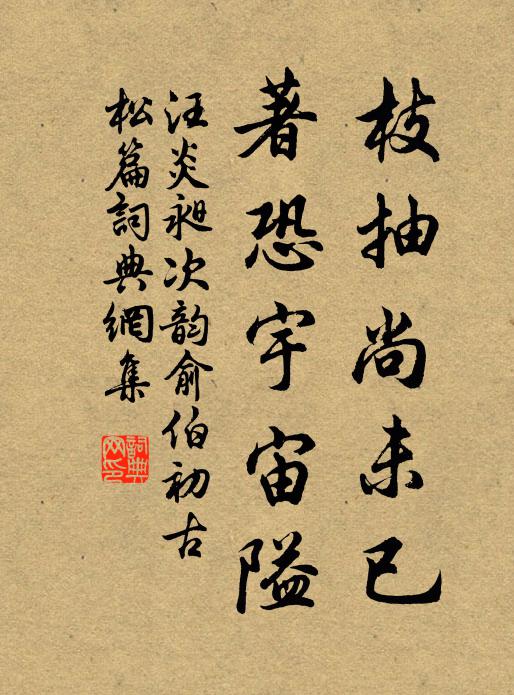 枝抽尚未已
著恐宇宙隘
汪炎昶次韵俞伯初古
松篇詞典網集
詞典网印